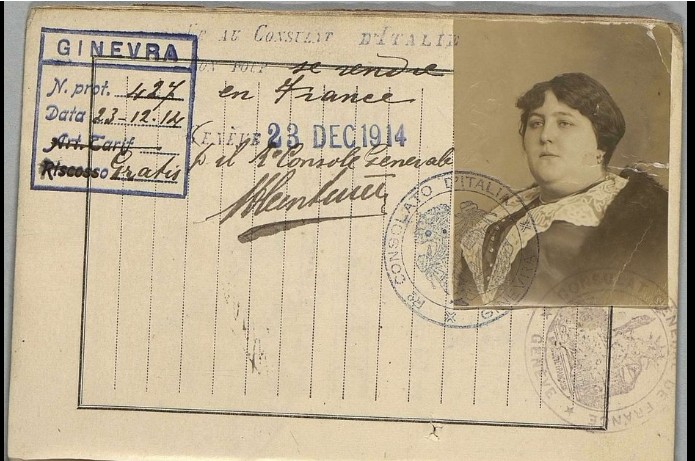 GINEVRA
N. prot. 427
Data 23-12-14
Art. Tariff
Riscosso Gratis
AU CONSULAT D'ITALIE
BON POUR se rendre
en France
GENÈVE 23 DEC 1914
p. il Ro Console Generale
Ro CONSOLATO D'ITALIA
CONSULAT
DE FRANCE
GENÈVE